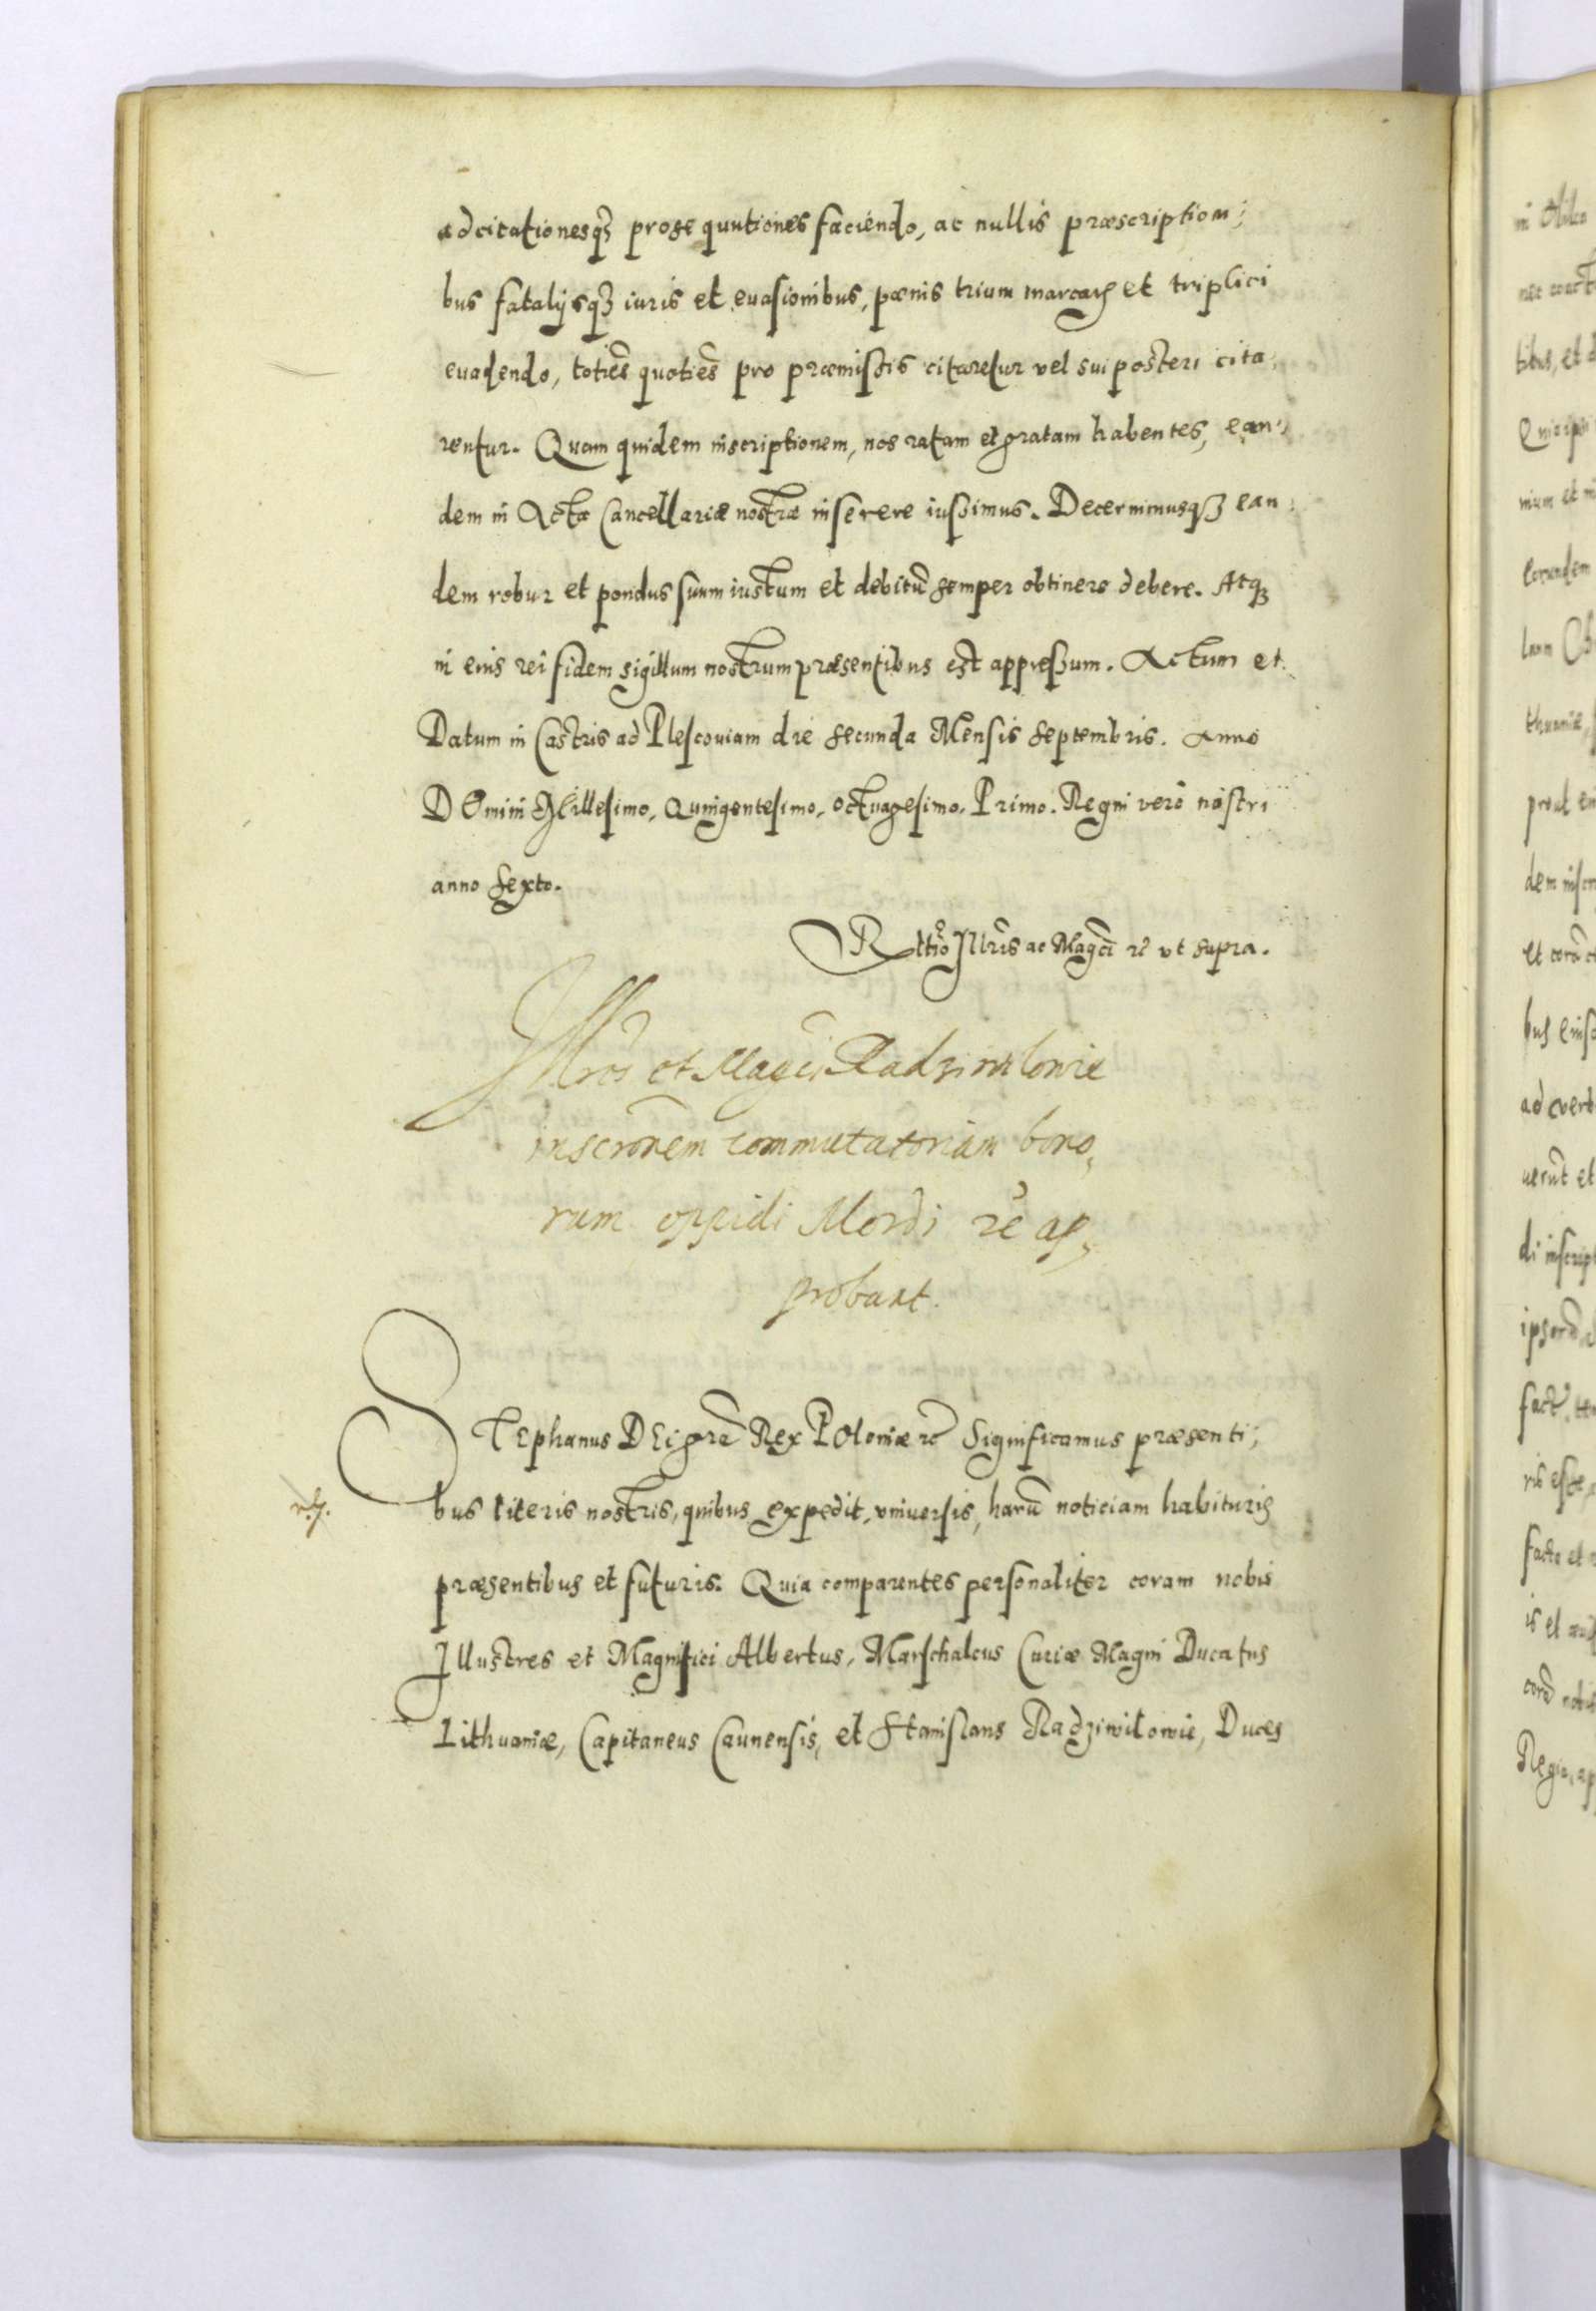 adcitationesq₃ prosequutiones faciendo, ac nullis præscriptioni;
bus fatalijsq₃ iuris et euasionibus, pænis trium marcaꝝ et triplici
euadendo, toties̃ quoties̃ pro præmissis citaretur vel sui posteri cita,
rentur. Quam quidem inscriptionem, nos ratam et gratam habentes, ean,
dem in Acta Cancellariæ nostræ inserere iussimus. Decernimusq₃ ean,
dem robur et pondus suum iustum et debitũ semper obtinere debere. Atq₃
in eius rei fidem sigillum nostrum præsentibus est appressum. Actum et
Datum in Castris ad Plescouiam die secunda Mensis Septembris. Anno
DOmini Millesimo, Quingentesimo, octuagesimo, Primo. Regni verò nostri
anno sexto.
Rttio Illris ac Magci ꝛc vt supra.
Illres et Magci Radziwilowie
inscronem commutatoriam bono,
rum oppidi Mordi ꝛc ap,
probant.
STEphanus DEi gra Rex POloniæ ꝛc Significamus præsenti;
bus literis nostris, quibus expedit, vniuersis, harũ noticiam habituris
præsentibus et futuris. Quia comparentes personaliter coram nobis
Illustres et Magnifici Albertus, Marschalcus Curiæ Magni Ducatus
Lithuaniæ, Capitaneus Caunensis, et Stanislaus Radziwilowie, Duces